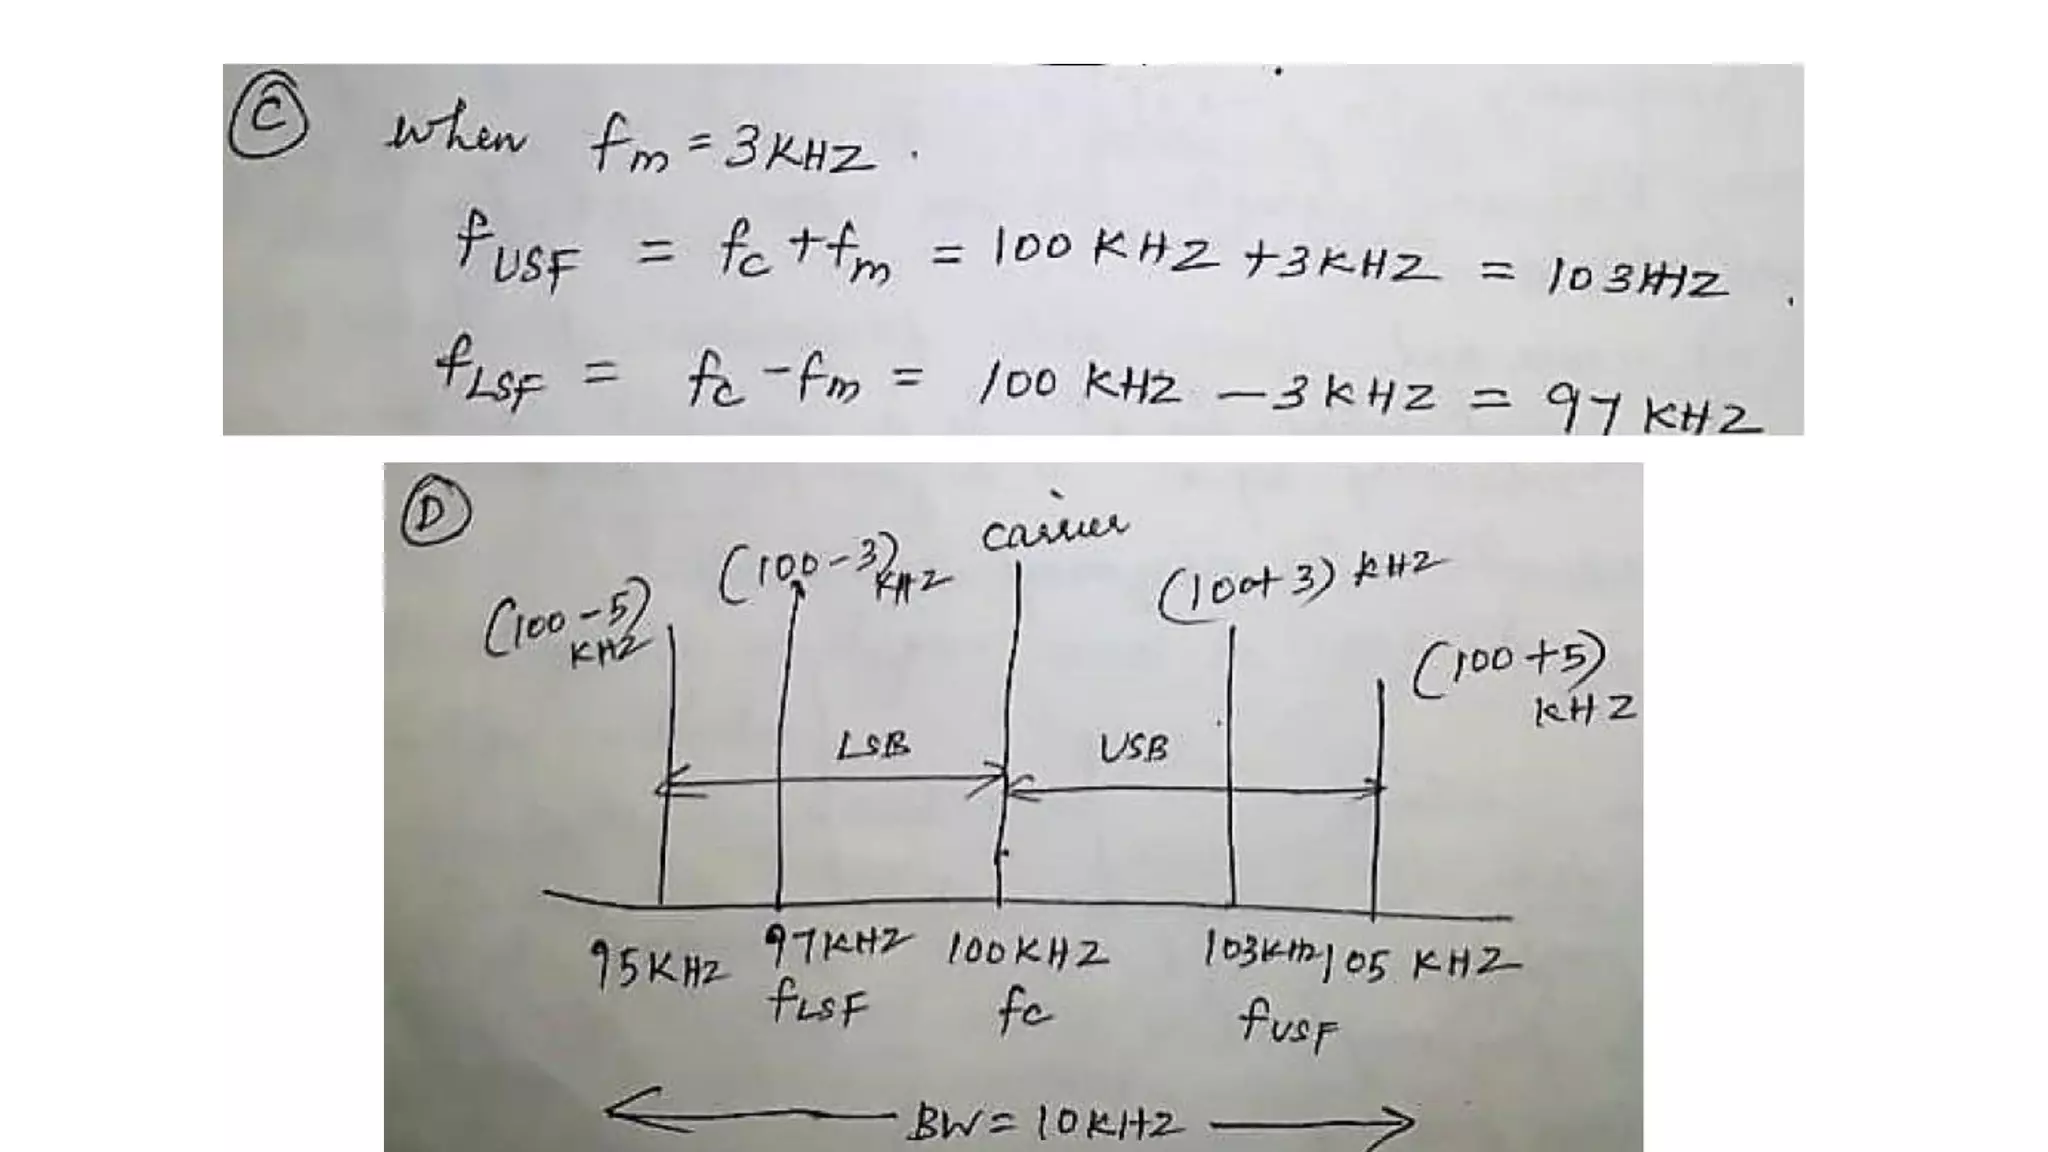 C when fm = 3KHZ.
fUSF = fc + fm = 100 KHZ + 3KHZ = 103HHZ.
fLSF = fc - fm = 100 KHZ - 3KHZ = 97 KHZ
D
carrier
(100-3) KHZ
(100+3) KHZ
(100-5) KHZ
(100+5) KHZ
LSB USB
95KHZ 97KHZ 100KHZ 103KHZ 105 KHZ
fLSF fc fUSF
BW = 10KHZ